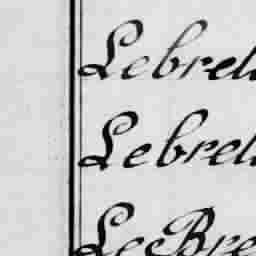 Lebrel
Lebrel
LeBre